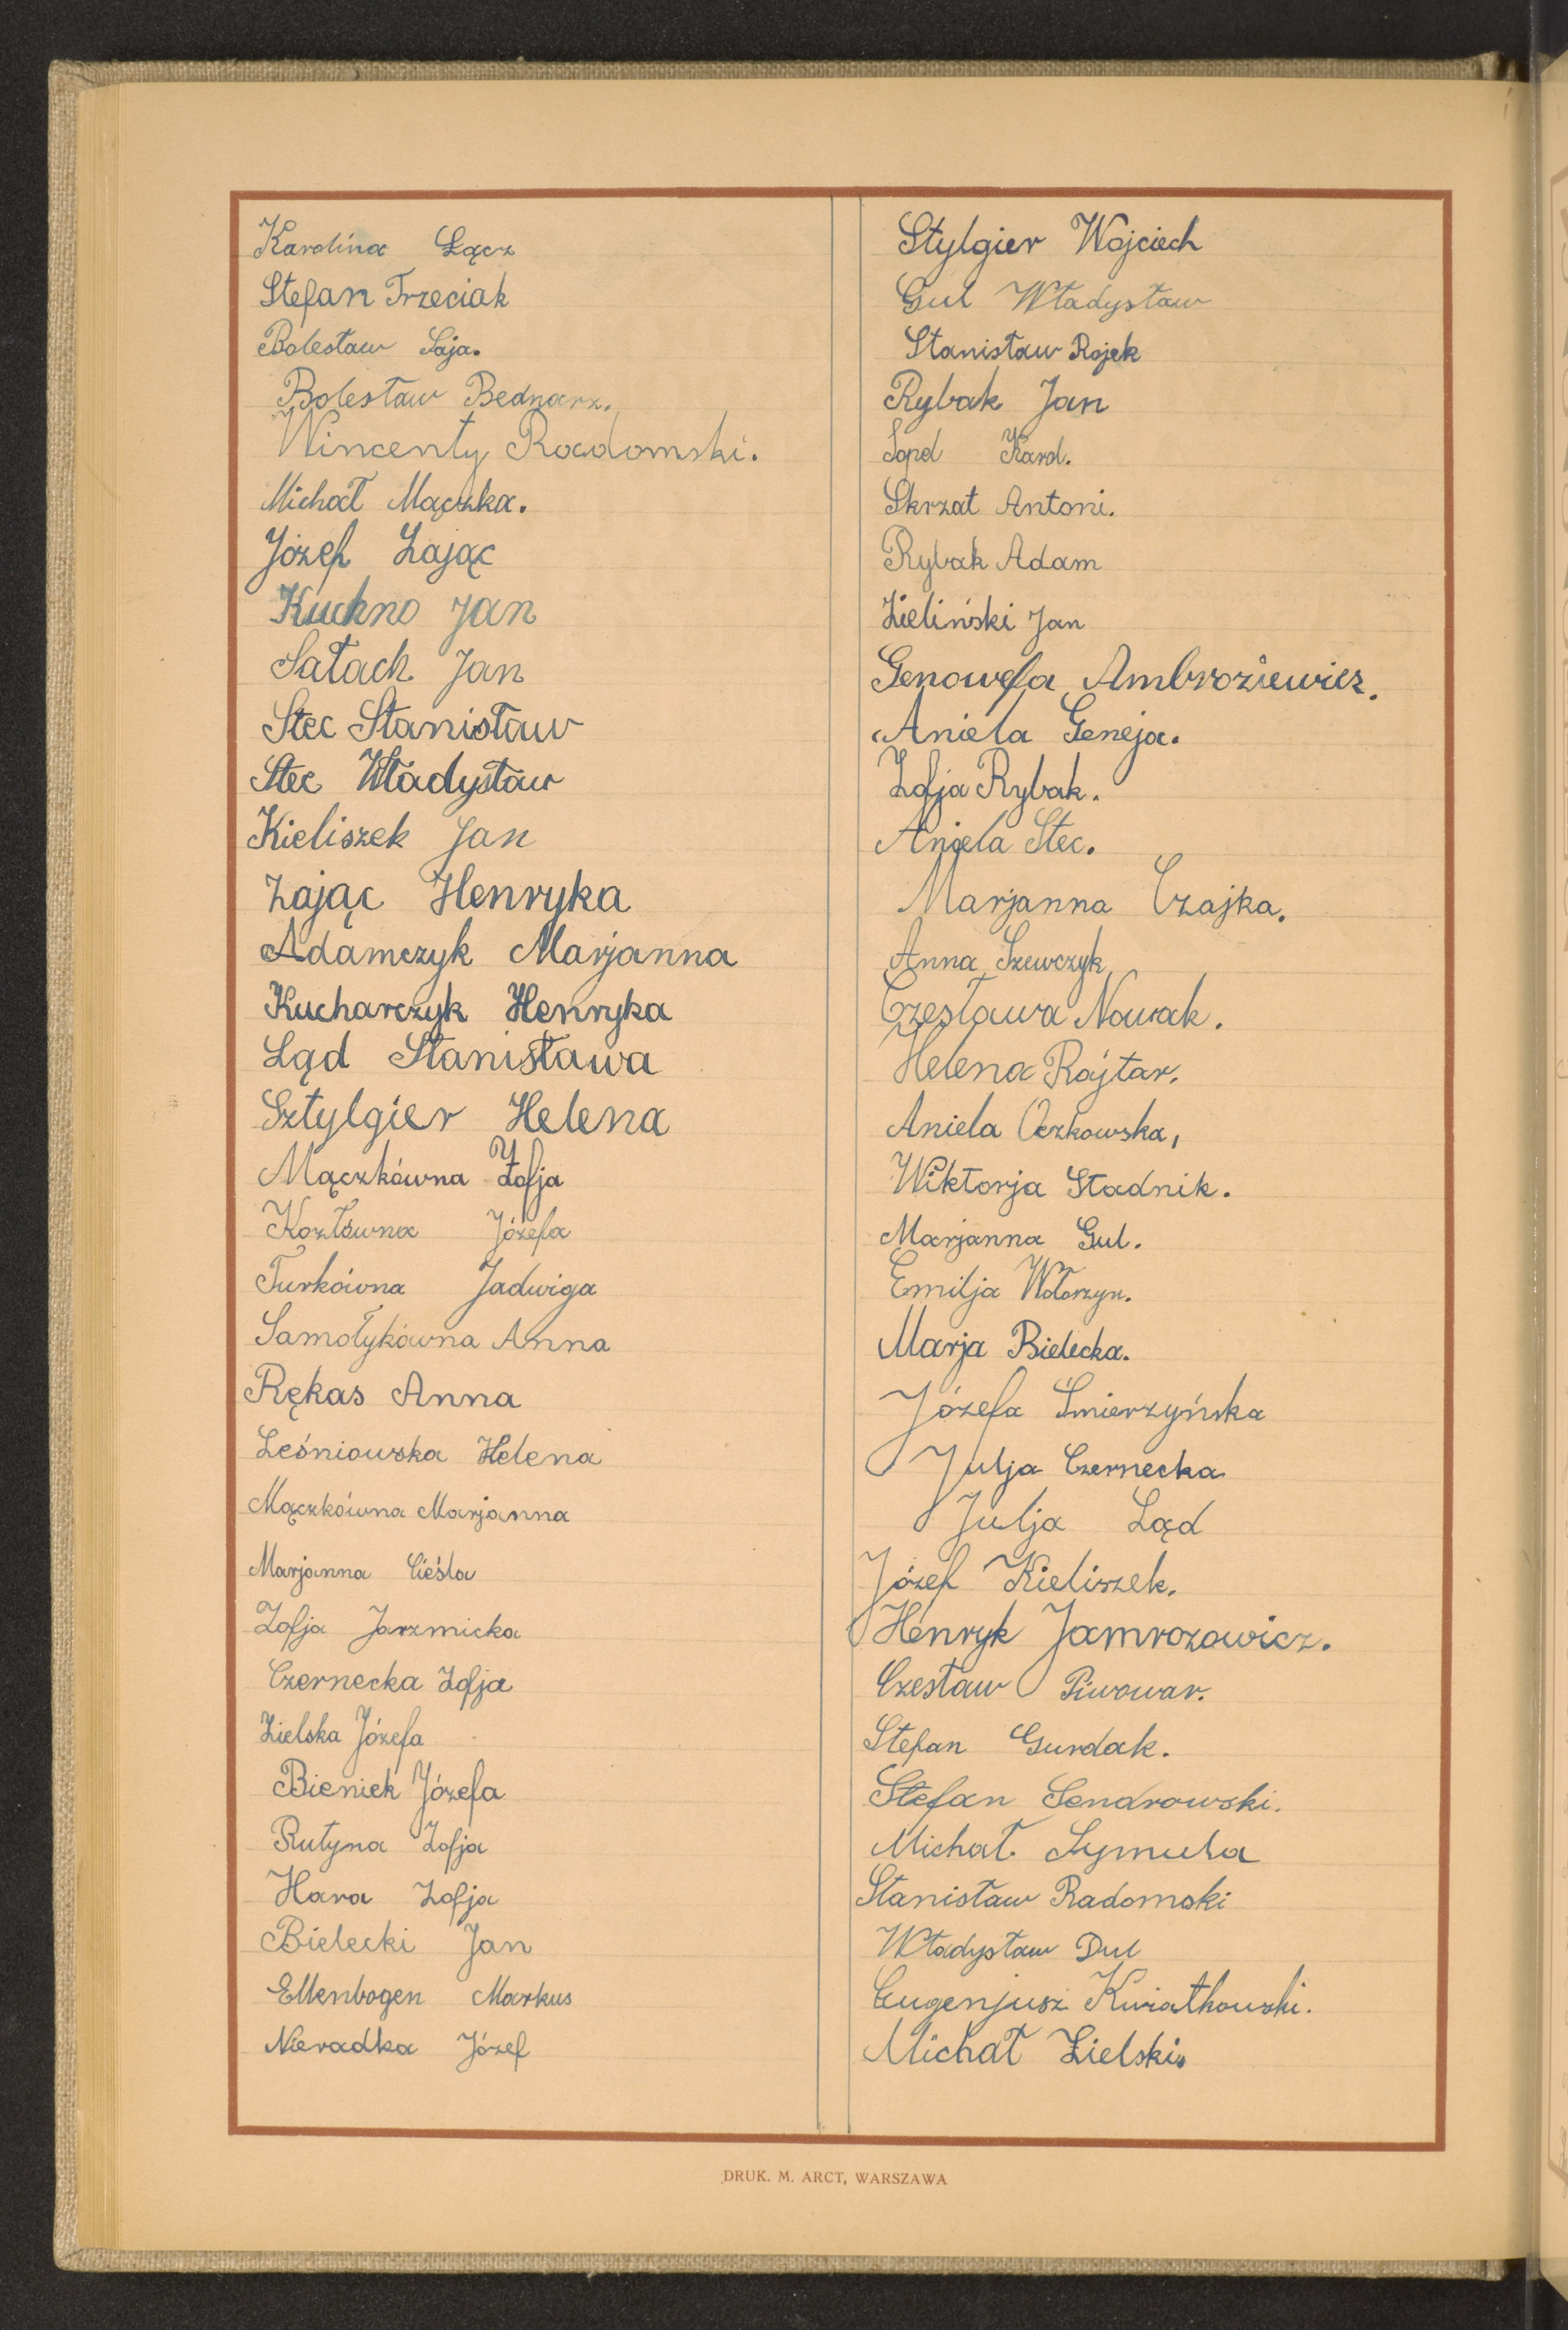 Karolina Łącz
Stefan Trzeciak
Bolesław Saja.
Bolesław Bednarz.
Wincenty Radomski.
Michał Mączka.
Józef Zając
Kuchno Jan
Sałach Jan
Stec Stanisław
Stec Władysław
Kieliszek Jan
Zając Henryka
Adamczyk Marjanna
Kucharczyk Henryka
Ląd Stanisława
Sztylgier Helena
Mączkówna Zofja
Kozłówna Józefa
Turkówna Jadwiga
Samołykówna Anna
Rękas Anna
Leśniowska Helena
Mączkówna Marjanna
Marjanna Cieśla
Zofja Jarzmicka
Czernecka Zofja
Zielska Józefa
Bieniek Józefa
Rutyna Zofja
Hara Zofja
Bielecki Jan
Ellenbogen Markus
Nieradka Józef
Stylgier Wojciech
Gul Władysław
Stanisław Rojek
Rybak Jan
Sopel Karol.
Skrzat Antoni.
Rybak Adam
Zieliński Jan
Genowefa Ambroziewicz.
Aniela Geneja.
Zofja Rybak.
Aniela Stec.
Marjanna Czajka.
Anna Szewczyk
Czesława Nowak.
Helena Rajtar.
Aniela Oczkowska,
Wiktorja Stadnik.
Marjanna Gul.
Emilja
Marja Bielecka.
Józefa Śmierzyńska
Julja Czernecka
Julja Ląd
Józef Kieliszek.
Henryk Jamrozowicz.
Czesław Piwowar.
Stefan Gurdak.
Stefan Sendrowski.
Michał Symula
Stanisław Radomski
Władysław Dul
Eugenjusz Kwiatkowski.
Michał Zielski.
DRUK. M. ARCT, WARSZAWA